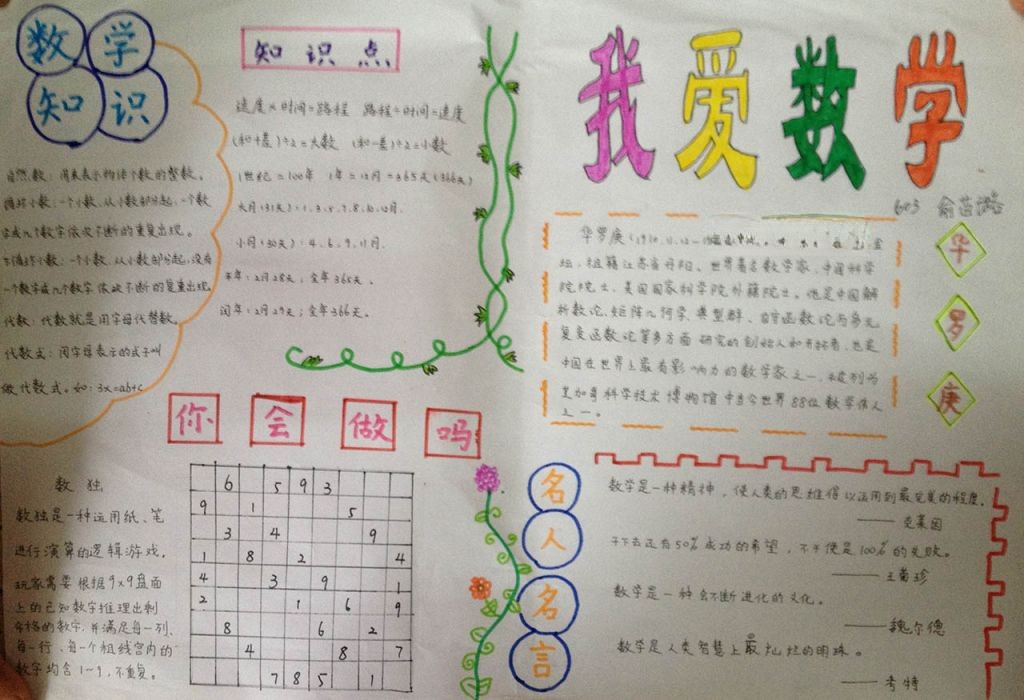 数学
知识
自然数：用来表示物体个数的整数。
循环小数：一个小数,从小数部分起,一个数
字或几个数字依次不断的重复出现。
不循环小数：一个小数,从小数部分起,没有
一个数字或几个数字依次不断的重复出现
代数：代数就是用字母代替数。
代数式：用字母表示的式子叫
做代数式。如：3x=ab+c
知识点
速度×时间=路程 路程÷时间=速度
(和+差)÷2=大数 (和-差)÷2=小数
1世纪=100年 1年=12月=365天(366天)
大月(31天)：1.3.5.7.8.10.12月.
小月(30天)：4.6.9.11月.
平年：2月28天；全年365天.
闰年：2月29天；全年366天.
我爱数学
603
华罗庚
华罗庚(1910.11.12—
坛,祖籍江苏省丹阳。世界著名数学家,中国科学
院院士,美国国家科学院外籍院士。他是中国解
析数论、矩阵几何学、典型群、自守函数论与多元
复变函数论等多方面研究的创始人和开拓者,也是
中国在世界上最有影响力的数学家之一,被列为
芝加哥科学技术博物馆中当今世界88位数学伟人
之一。
你会做吗
数独
数独是一种运用纸、笔
进行演算的逻辑游戏。
玩家需要根据9×9盘面
上的已知数字推理出剩
余格的数字,并满足每一列、
每一行、每一个粗线宫内的
数字均含1—9,不重复。
6 5 9 3
9 1 5
3 4 9
1 8 2 4
4 3 9 1
2 1 6 9
8 6 2
4 8 7
7 8 5 1
名人名言
数学是一种精神，使人类的思维得以运用到最完美的程度.
——克莱因
干下去还有50%成功的希望，不干便是100%的失败。
——王菊珍
数学是一种会不断进化的文化。
——魏尔德
数学是人类智慧上最灿烂的明珠。
——考特